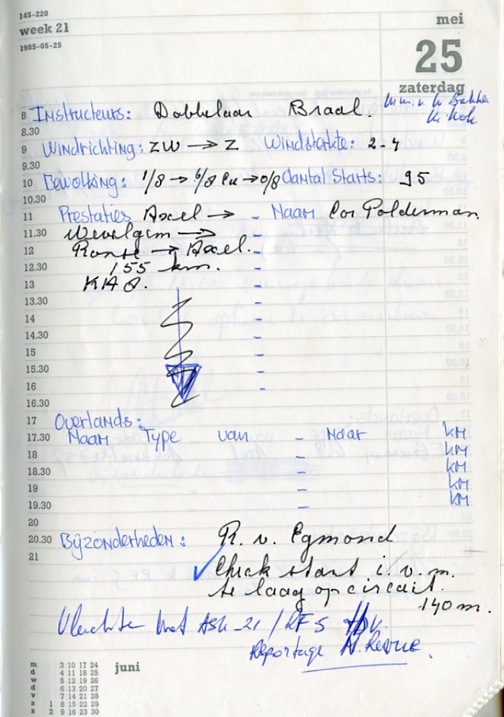 145-220
mei
week 21
1985-05-25
25
zaterdag
8 Instructeurs: Dobbelaar Braal. m.m.v. h Bakker
8.30 K. Kok
9 Windrichting: ZW → Z Windsterkte: 2-4
9.30
10 Bewolking: 1/8 → 6/8 Cu → 0/8 Aantal Starts: 95
10.30
11 Prestaties Axel → - Naam Cor Polderman
11.30 Wevelgem →
12 Ronse → Axel.
12.30 155 km.
13 KA 8.
13.30
14
14.30
15
15.30
16
16.30
17 Overlands:
17.30 Naam Type van - Naar KM
18 KM
18.30 KM
19 KM
19.30 KM
20
20.30 Bijzonderheden: R. v. Egmond
21 ✓ Check start i.v.m.
te laag op circuit.
140 m.
Vluchten met ASK-21 / RF 5 tbv.
Reportage N. Revue.
m 3 10 17 24 juni
d 4 11 18 25
w 5 12 19 26
d 6 13 20 27
v 7 14 21 28
z 1 8 15 22 29
z 2 9 16 23 30